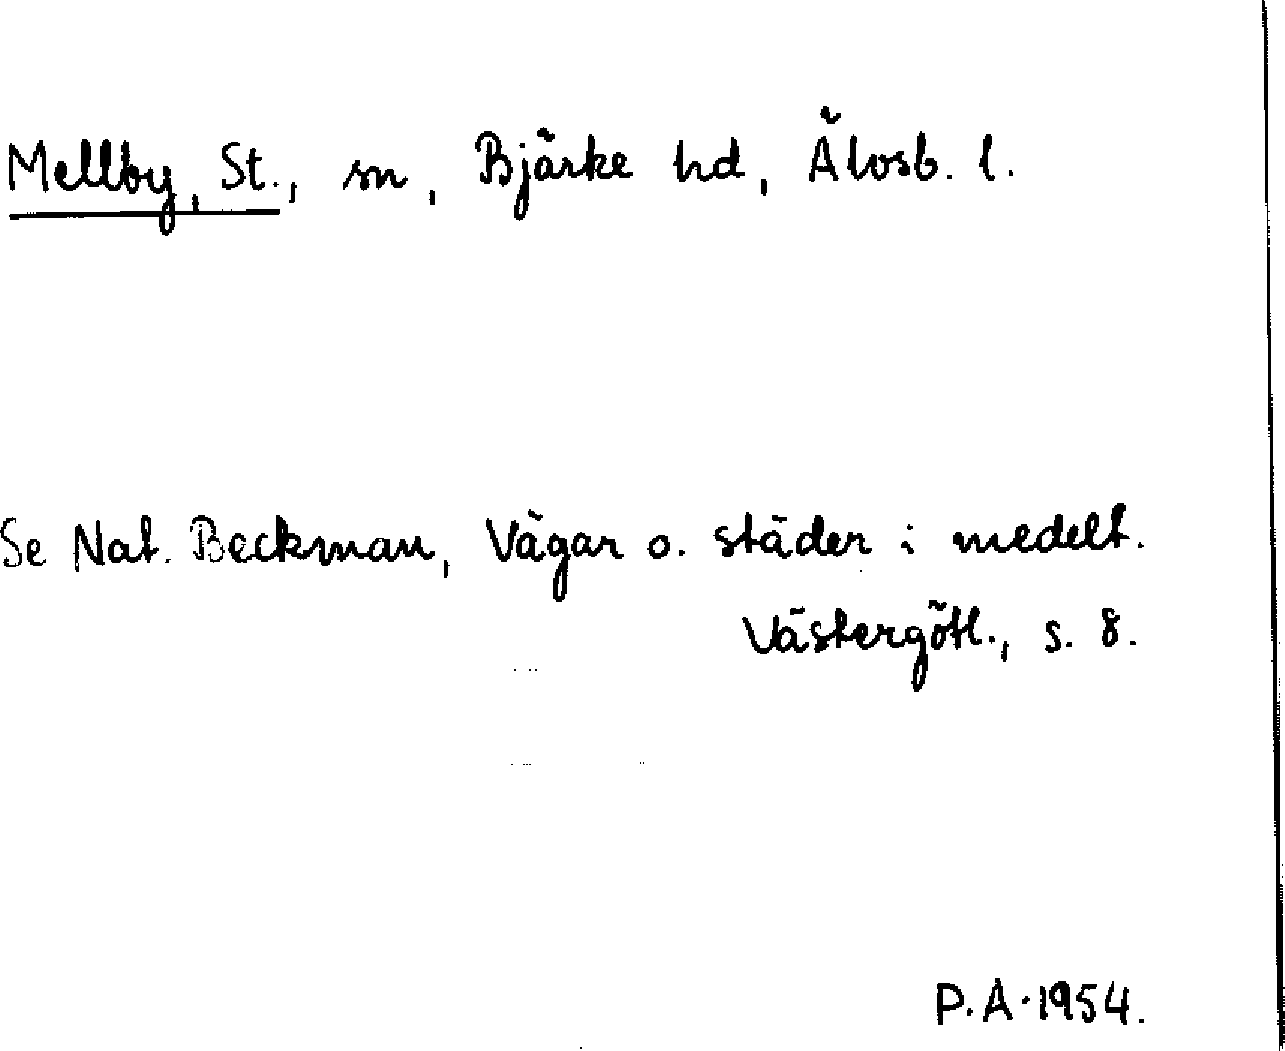 Mellby, St., sn, Bjärke hd, Älvsb. l.
Se Nat. Beckman, Vägar o. städer i medelt.
Västergötl., s. 8.
P.A. 1954.